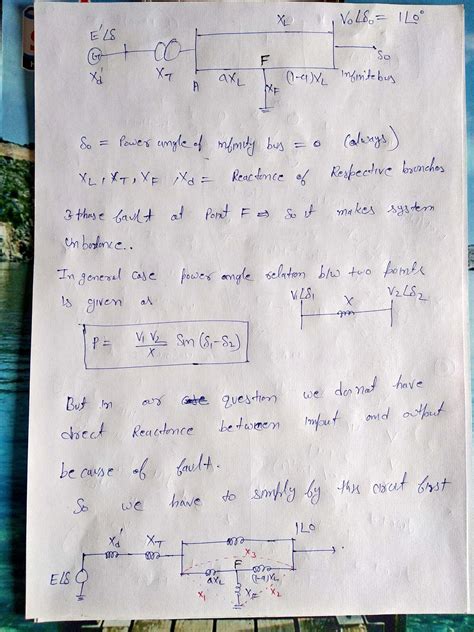 E'∠δ
X_L
V₀∠δ₀ = 1∠0°
G
F
δ₀
X'd
X_T
A
aX_L
X_F
(1-a)X_L
Infinite bus
δ₀ = Power angle of infinity bus = 0 (always)
X_L, X_T, X_F, X'd = Reactance of Respective branches
3 phase fault at Point F ⇒ So it makes system
Unbalance..
In general case power angle relation b/w two points
is given as
V₁∠δ₁
X
V₂∠δ₂
P = V₁V₂/X Sin(δ₁-δ₂)
But in our question we do not have
direct Reactance between input and output
because of fault.
So we have to simply by this circuit first
X'd
X_T
1∠0
X₃
E∠δ
aX_L
F
(1-a)X_L
X₁
X_F
X₂